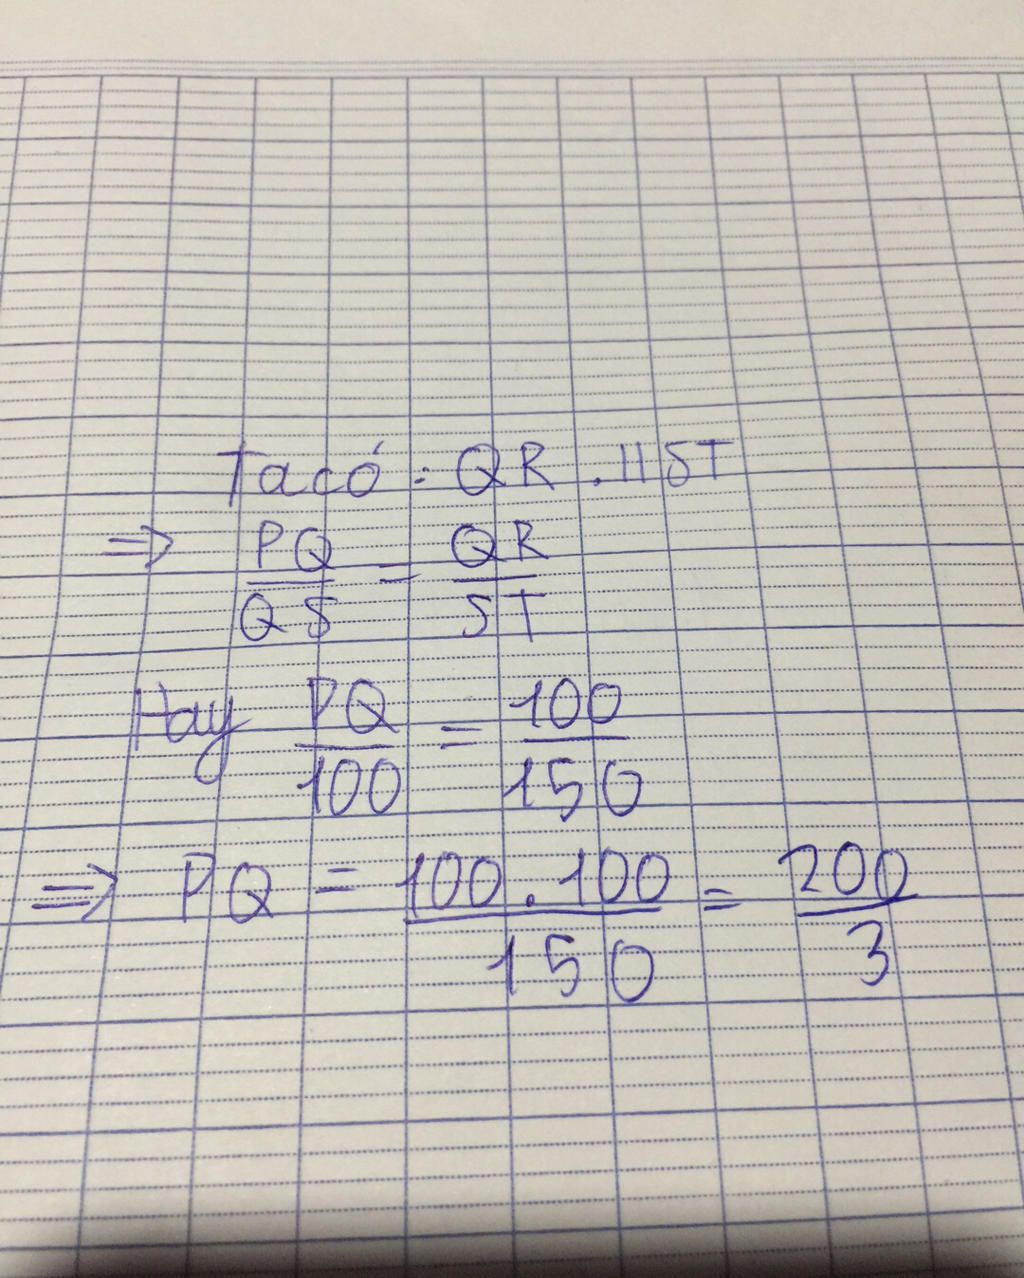 Ta có : QR . // ST
=> PQ/QS = QR/ST
Hay PQ/100 = 100/150
=> PQ = 100.100/150 = 200/3